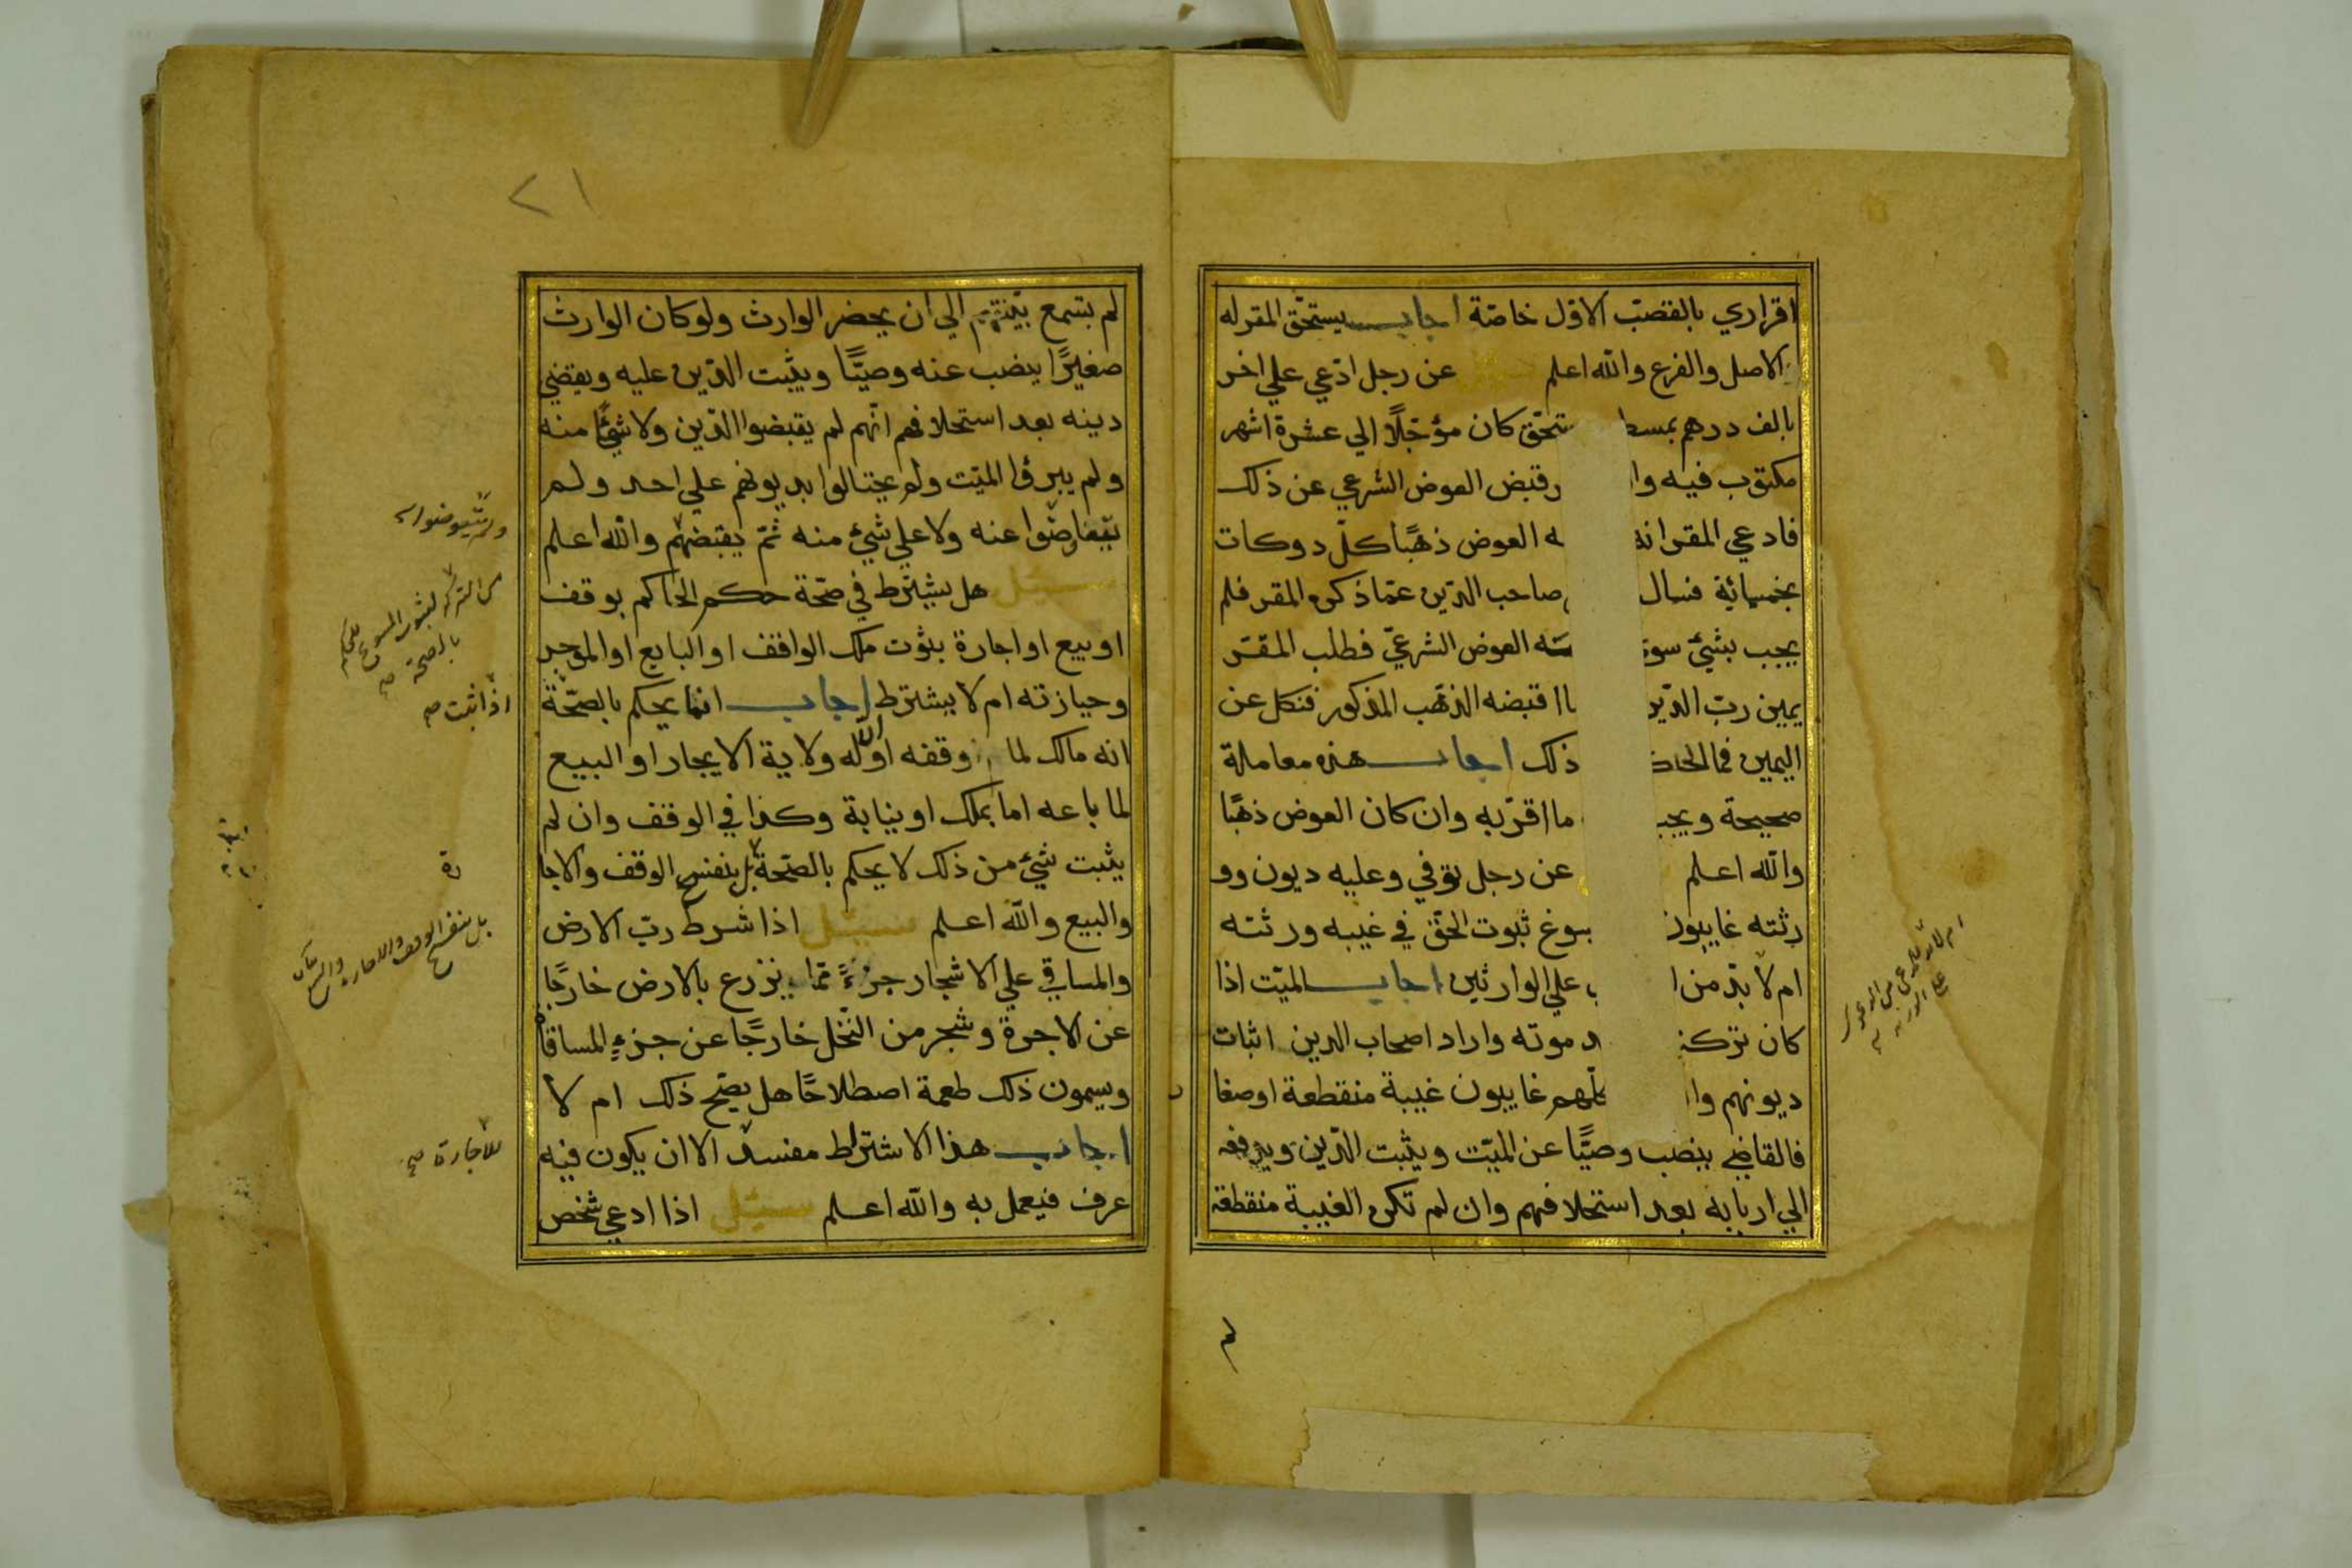 اقراري بالقصب الاول خاصّة اجاب يستحقّ المقرله
الاصل والفرع والله اعلم سئل عن رجل ادّعي علي اخر
بالف درهم بمسط ستحقّ كان مؤجّلًا الي عشرة اشهر
مكتوب فيه وا وقبض العوض الشرعي عن ذلك
فادعي المقر انه له العوض ذهبًا كلّ دوكات
بخمسائية فسال صاحب الدّين عمّا ذكره المقر فلم
يجب بشئ سو العوض الشرعيّ فطلب المقرّ
يمين ربّ الدّين ما اقبضه الذهب المذكور فنكل عن
اليمين فما الحك ذلك اجاب هذه معاملة
صحيحة ويج ما اقرّ به وان كان العوض ذهبًا
والله اعلم عن رجل توفي وعليه ديون وو
رثته غايبون سوغ ثبوت الحقّ في غيبه ورثته
ام لا بدّ من ا علي الوارثين اجاب الميّت اذا
كان تركة د موته واراد اصحاب الدين اثبات
ديونهم وا كلّهم غايبون غيبة منقطعة او صغا
فالقاضي ينصب وصيًّا عن الميّت ويثبت الدّين ويدفعه
الي اربابه بعد استحلافهم وان لم تكن الغيبة منقطعة
لم
٢١
لم يسمع بيّنتهم الي ان يحضر الوارث ولو كان الوارث
صغيرًا ينصب عنه وصيًّا ويثبت الدّين عليه ويقضي
دينه بعد استحلافهم انّهم لم يقبضوا الدّين ولا شيئًا منه
ولم يبرؤا الميّت ولم يحتالوا بديونهم علي احد ولم
يتعاوضوا عنه ولا علي شئ منه ثمّ يقبضهم والله اعلم
سئل هل يشترط في صحّة حكم الحاكم بوقف
او بيع او اجارة بثوت ملك الواقف او البايع او الموجر
وحيازته ام لا يشترط اجاب انما يحكم بالصحّة
انه مالك لما وقفه او ان له ولاية الايجار او البيع
لما باعه اما بملك او بنيابة وكذا في الوقف وان لم
يثبت شئ من ذلك لا يحكم بالصّحة بل بنفس الوقف والاجا
والبيع والله اعلم سئل اذا شرط ربّ الارض
والمساقي علي الاشجار جزءً ممّا يزرع بالارض خارجًا
عن الاجرة وشجر من النّخل خارجًا عن جزء المساقاة
ويسمون ذلك طعمة اصطلاحًا هل يصّح ذلك ام لا
اجاب هذا الاشتراط مفسد الا ان يكون فيه
عرف فيعمل به والله اعلم سئل اذا ادعي شخص
اذا ثبت صح
رة
بل بنفس الوقف والاجارة والبيع
للاجارة صح